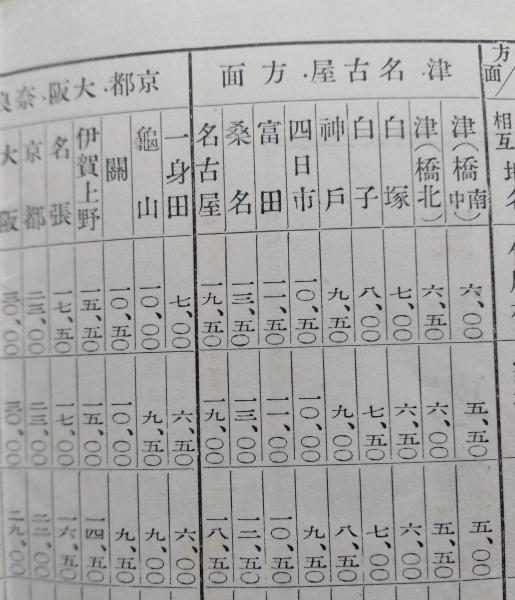 方面
相互地名
津・名古屋・方面
津(橋南中)
津(橋北)
白塚
白子
神戸
四日市
富田
桑名
名古屋
京都・大阪・奈良
一身田
龜山
關
伊賀上野
名張
京都
大阪
六、〇〇
六、五〇
七、〇〇
八、〇〇
九、五〇
一〇、五〇
一一、五〇
一三、五〇
一九、五〇
七、〇〇
一〇、〇〇
一〇、五〇
一五、五〇
一七、五〇
二三、〇〇
三〇、〇〇
五、五〇
六、〇〇
六、五〇
七、五〇
九、〇〇
一〇、〇〇
一一、〇〇
一三、〇〇
一九、〇〇
六、五〇
九、五〇
一〇、〇〇
一五、〇〇
一七、〇〇
二三、〇〇
三〇、〇〇
五、〇〇
五、五〇
六、〇〇
七、〇〇
八、五〇
九、五〇
一〇、五〇
一二、五〇
一八、五〇
六、〇〇
九、〇〇
九、五〇
一四、五〇
一六、五〇
二二、〇〇
二九、〇〇